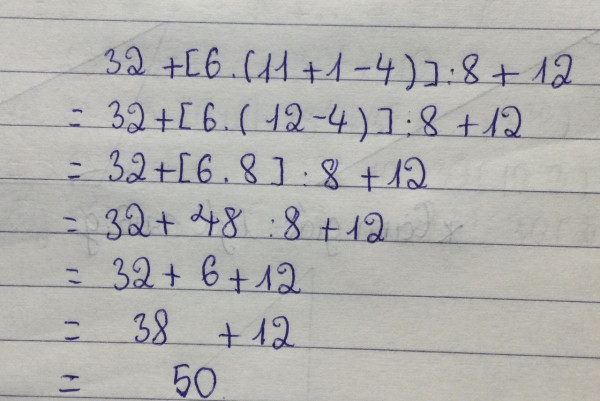 32 + [6 . (11 + 1 - 4)] : 8 + 12
= 32 + [6 . (12 - 4)] : 8 + 12
= 32 + [6 . 8] : 8 + 12
= 32 + 48 : 8 + 12
= 32 + 6 + 12
= 38 + 12
= 50